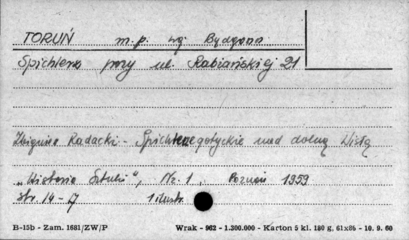 TORUŃ m.p. wj. Bydgoss
Spichlerz przy ul. Rabiańskiej 21
Zbigniew Radacki - Spichlerze gotyckie nad dolną Wisłą
„Historia Sztuki", Nr. 1. Poznań 1959
str. 14-17 1 ilustr.
B-15b - Zam. 1681/ZW/P Wrak - 962 - 1.200.000 - Karton 5 kl. 180 g, 61x86 - 10. 9. 60